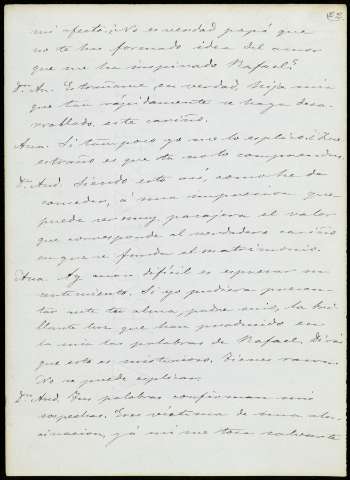 mi afecto. ¿No es verdad papá que
no te has formado idea del amor
que me ha inspirado Rafael?
Dn. An. Estráñame en verdad, hija mia
que tan rápidamente se haya desa-
rrollado este cariño.
Ana. Si tampoco yo me lo esplico; Qué
estraño es que tu no lo comprendas.
Dn. And. Siendo esto así, como he de
conceder, á una impresion que
puede ser muy pasajera el valor
que corresponde al verdadero cariño
en que se funda el matrimonio.
Ana Ay cuan dificil es espresar un
sentimiento. Si yo pudiera presen-
tar ante tu alma, padre mio, la bri-
llante luz que han producido en
la mia las palabras de Rafael. Dirás
que esto es misterioso. Tienes razon.
No se puede esplicar.
Dn. And. Tus palabras confirman mis
sospechas. Eres victima de una alu-
cinacion, y á mi me toca salvarte